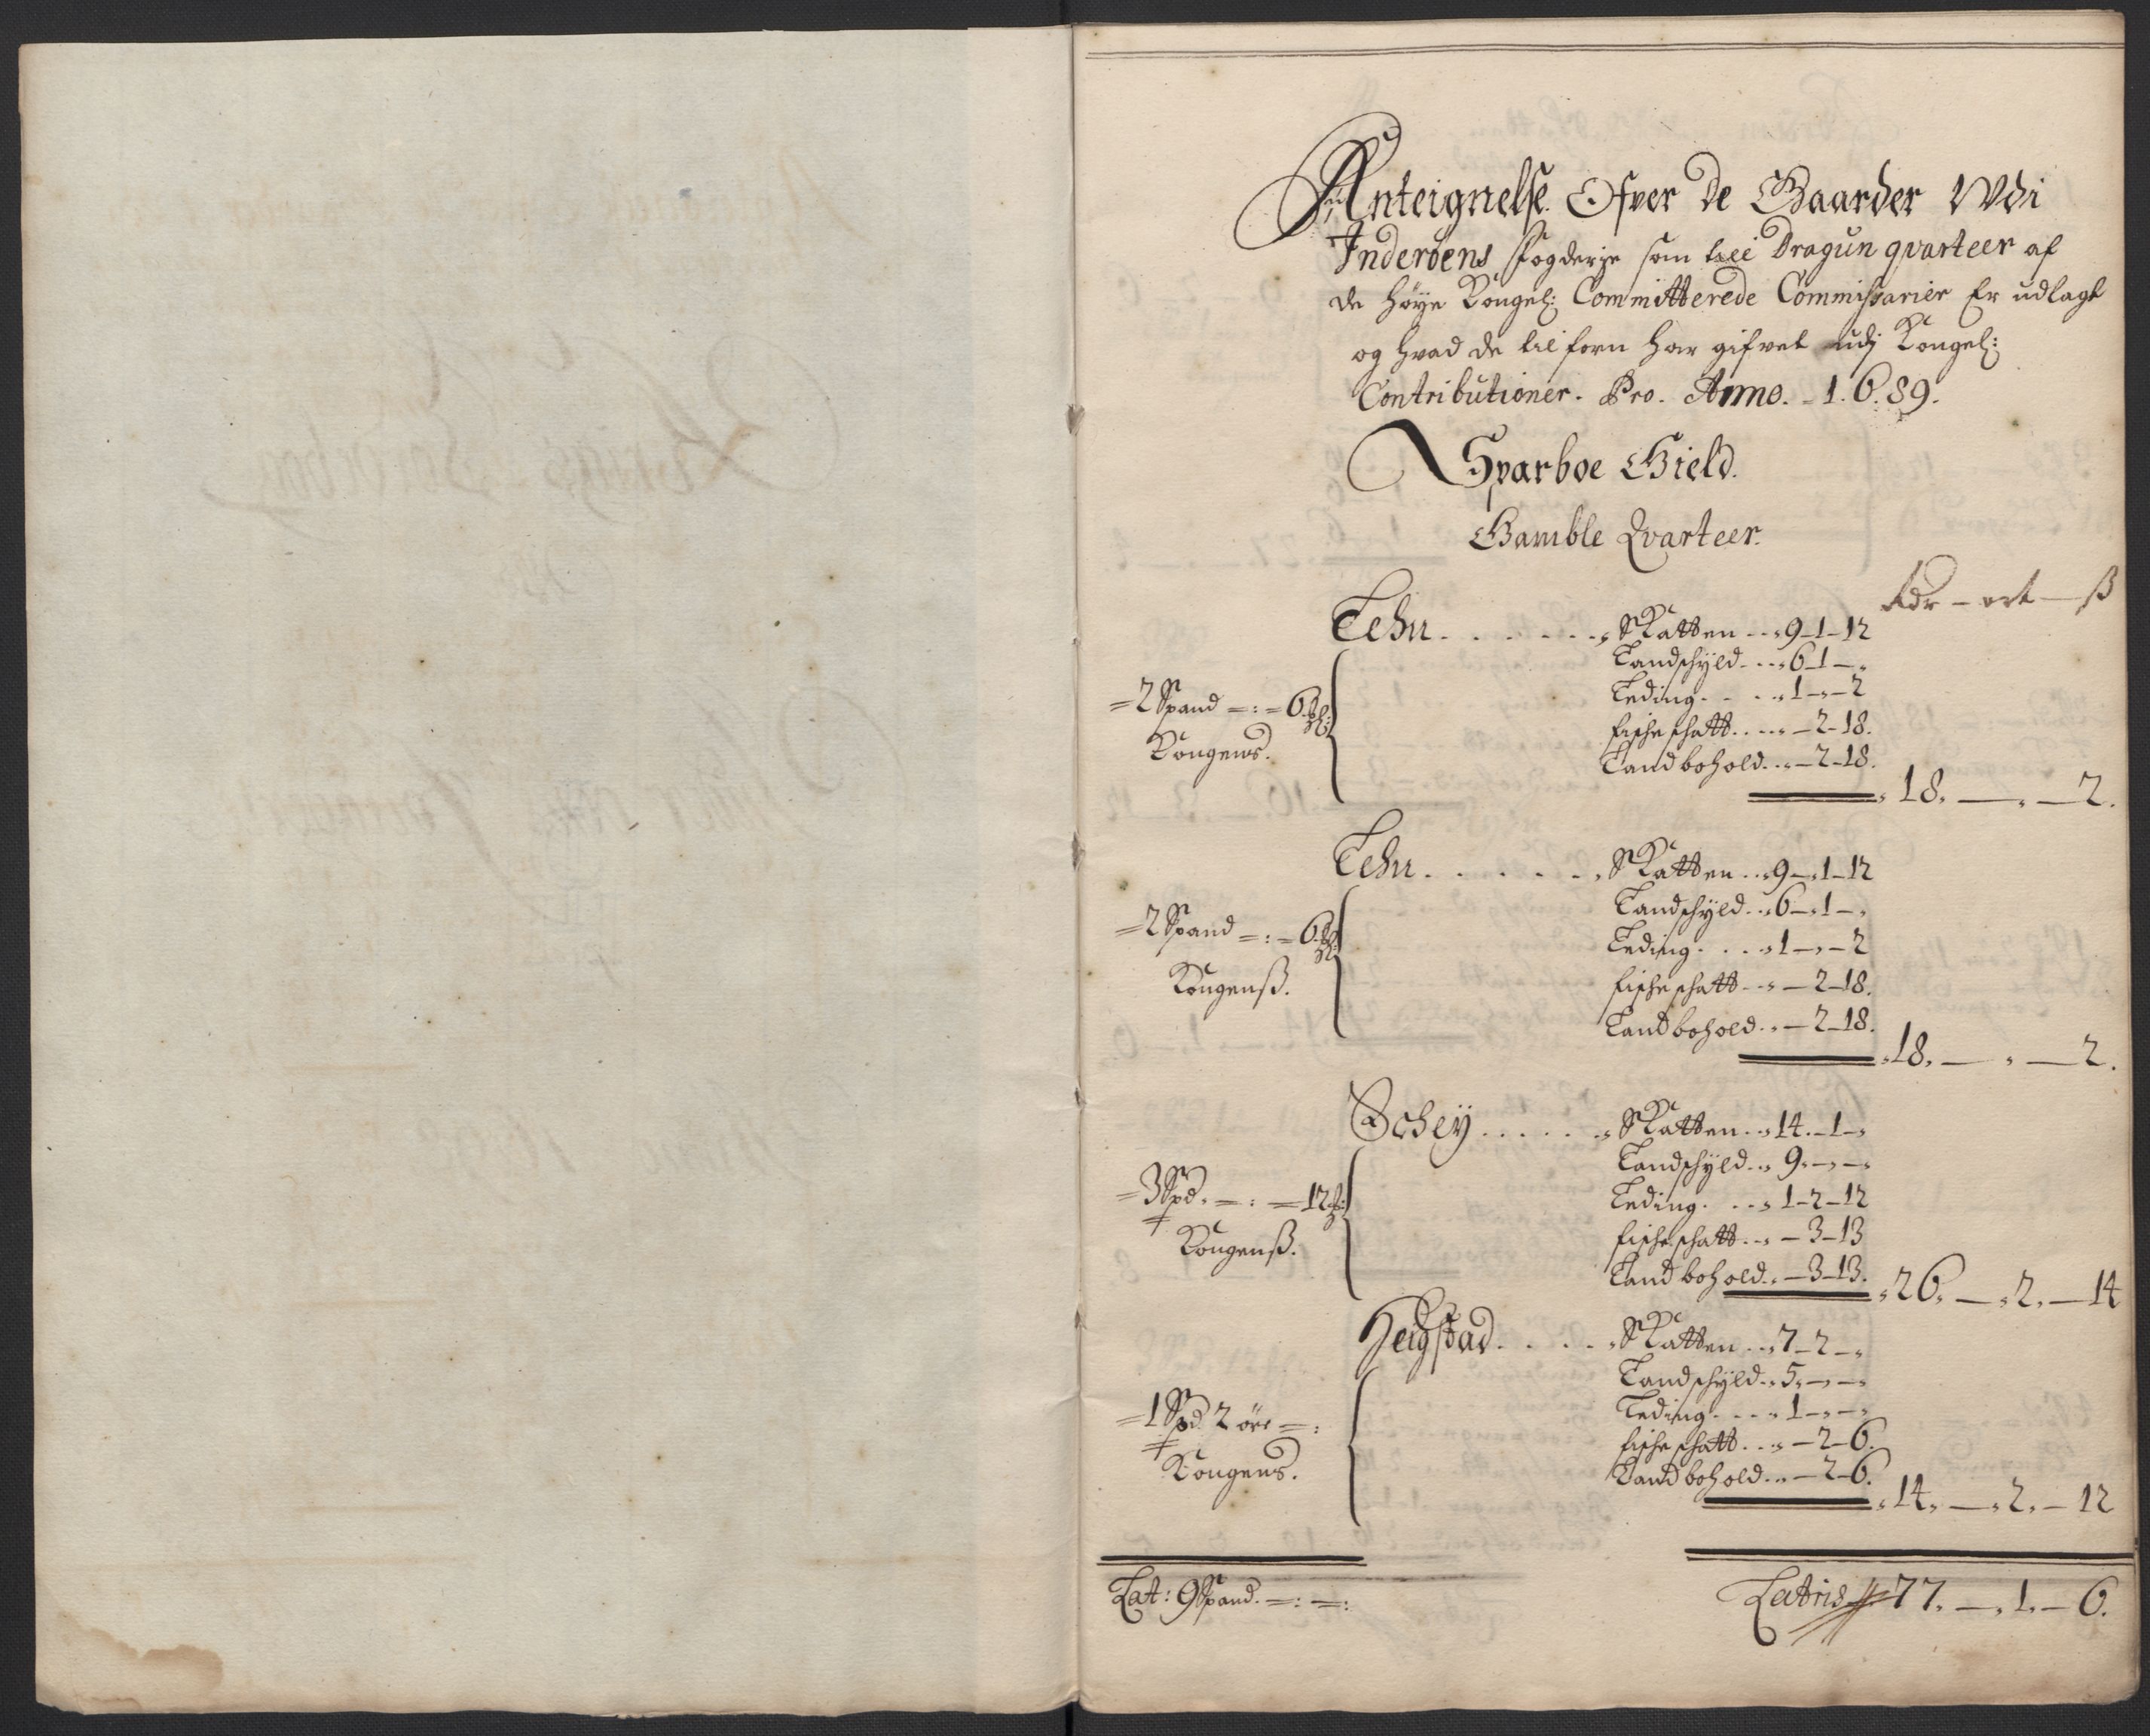 Anteignelse Ofver de Gaarder Wdi
Inderøens fogderje som till Dragun qvarteer af
de høye Kongel: Committerede Commissarier Er udlagt
og hvad de tilforn har gifvet udj Kongel:
Contributioner. Pro. Anno. 1.6.89.
Sparboe Gield.
Gamble Qvarteer.
Rdr - ort - ß
Lehn. . . . . . . Skatten - - 9-1-12
Landschyld. - - 6 1 - „
Leding. - - 1 - „ - 2
fische schatt. . - - 2-18.
Landbohold. . - 2-18.
=2 Spand =:= 6
Kongens.
18. — „ — 2.
Lehn. . . . . . Skatten . . 9 - 1-12
Landschyld. . 6 - 1 - „
Leding. . . . 1 - „ - 2
fische schatt - - - 2-18.
Landbohold. . - 2-18.
=2 Spand =:= 6
Kongenß.
18. — „ — 2.
Schey . . . . . . Skatten. . 14. -1- „
Landschyld. . 9. - „ - „
Leding. . . . 1-2-12
fische schatt. . - 3-13
Landbohold. . - 3-13.
=3 Spd. =:= 12
Kongenß.
26. — 2. — 14
Heigstad. . . . . Skatten . . 7-2 - „
Landschyld. . 5. - „ - „
Leding. - - - 1 - „ - „
fische schatt. . . - 2-6.
Landbohold. . . - 2-6.
=1 Spd. 2 öre =:
Kongens.
14. — 2. — 12
Lat: 9 Spand. =: =:
Latris 77. — 1. — 6.